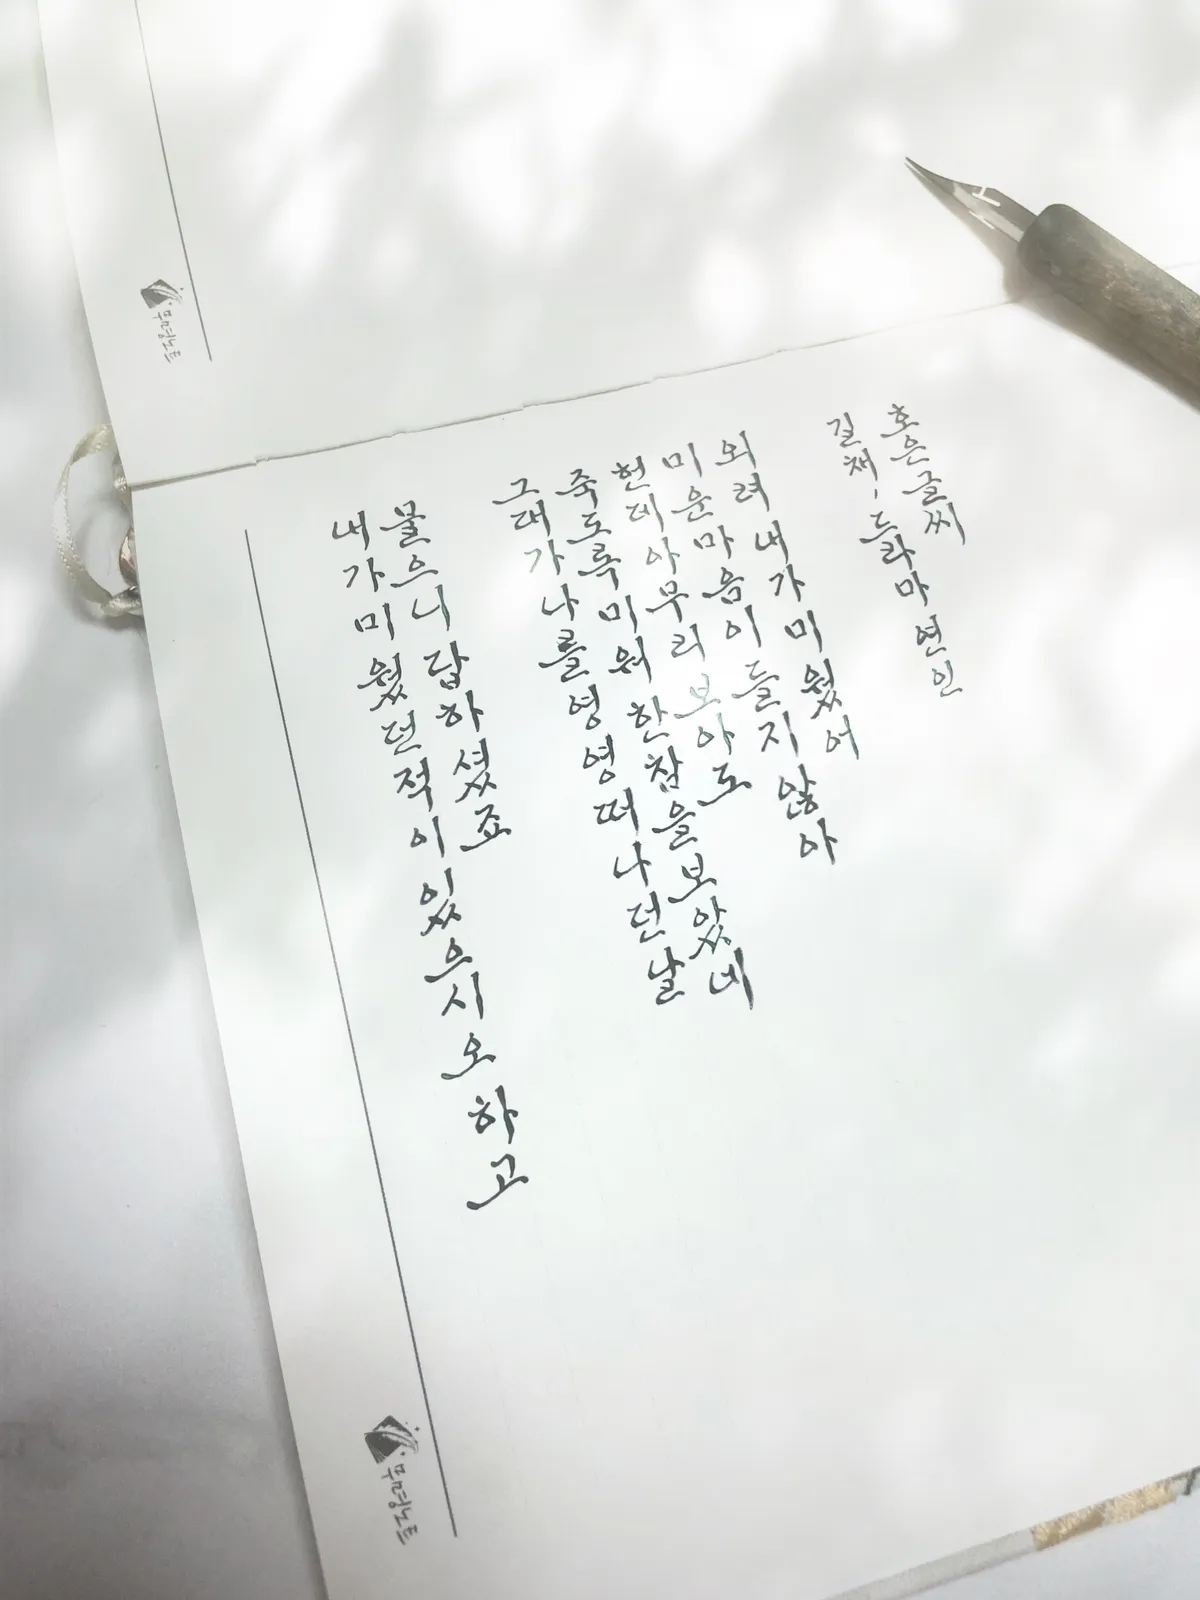 내가 미웠던 적이 있으시오 하고
물으니 답하셨죠
그대가 나를 영영 떠나던 날
죽도록 미워 한참을 보았네
헌데 아무리 보아도
미운 마음이 들지 않아
외려 내가 미웠어
길채, 드라마 연인
호은글씨